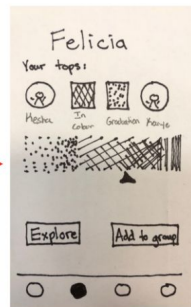 Felicia
Your tops:
Kesha In Colour Graduation Kanye
Explore Add to group